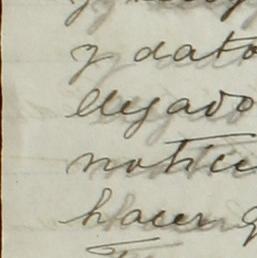 y dato
llegado
notici
hacer q